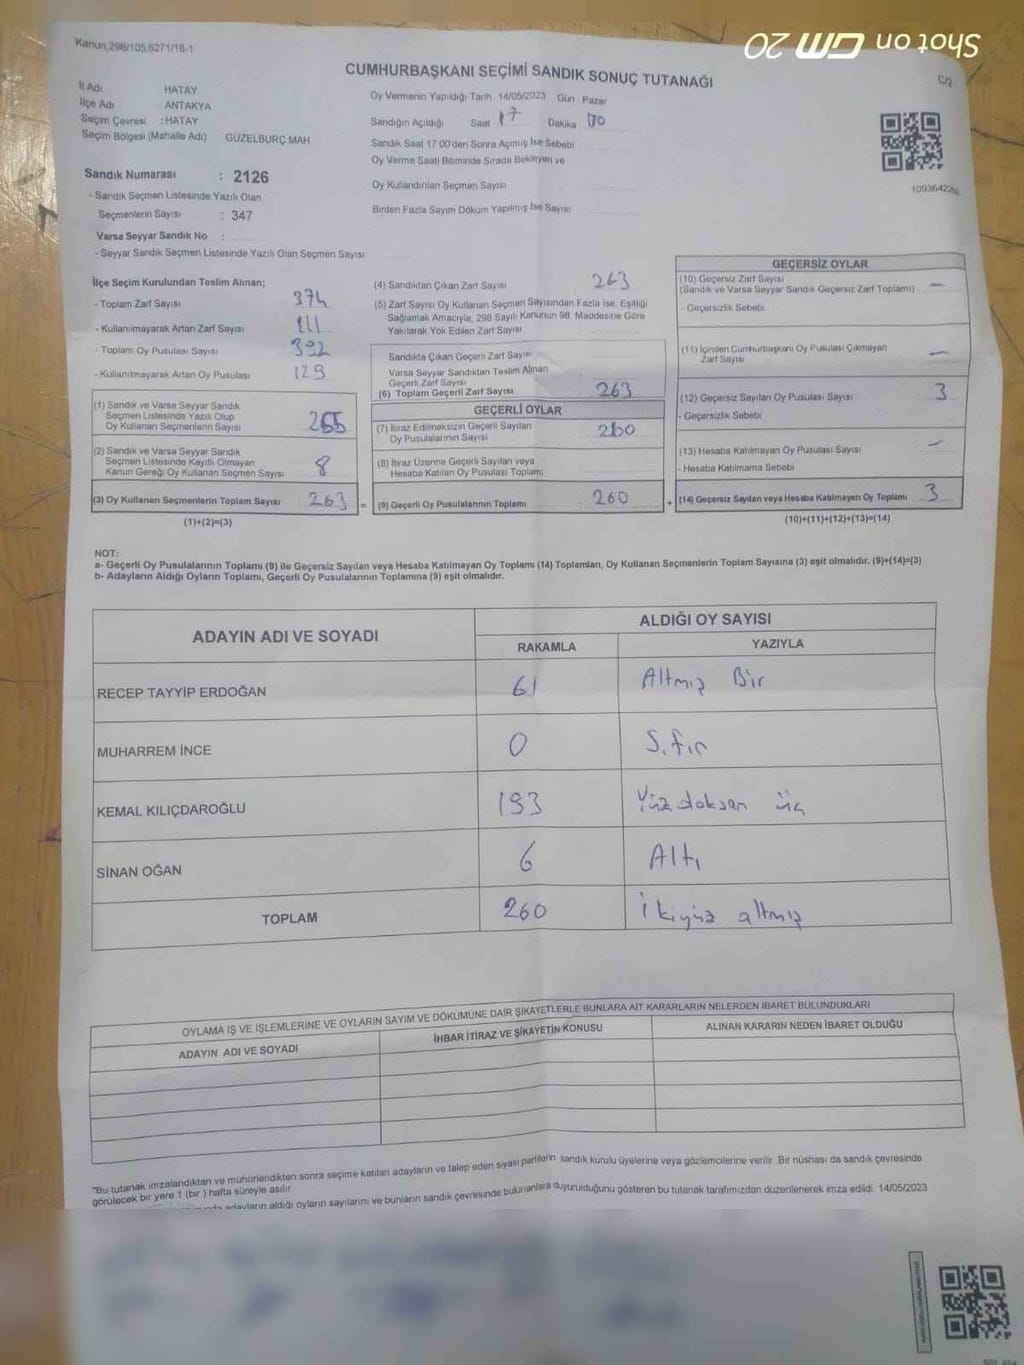 Shot on GM 20
Kanun,298/105,6271/18-1
C/2
CUMHURBAŞKANI SEÇİMİ SANDIK SONUÇ TUTANAĞI
İl Adı HATAY
İlçe Adı : ANTAKYA
Seçim Çevresi : HATAY
Seçim Bölgesi (Mahalle Adı) GÜZELBURÇ MAH
Sandık Numarası : 2126
- Sandık Seçmen Listesinde Yazılı Olan
Seçmenlerin Sayısı : 347
Varsa Seyyar Sandık No :
- Seyyar Sandık Seçmen Listesinde Yazılı Olan Seçmen Sayısı
Oy Vermenin Yapıldığı Tarih 14/05/2023 Gün Pazar
Sandığın Açıldığı Saat 17 Dakika 00
Sandık Saat 17:00'den Sonra Açımış İse Sebebi
Oy Verme Saati Bitiminde Sırada Bekleyen ve
Oy Kullandırılan Seçmen Sayısı
Birden Fazla Sayım Döküm Yapılmış İse Sayısı
İlçe Seçim Kurulundan Teslim Alınan;
- Toplam Zarf Sayısı 374
- Kullanılmayarak Artan Zarf Sayısı 111
- Toplam Oy Pusulası Sayısı 392
- Kullanılmayarak Artan Oy Pusulası 129
(1) Sandık ve Varsa Seyyar Sandık
Seçmen Listesinde Yazılı Olup
Oy Kullanan Seçmenlerin Sayısı 255
(2) Sandık ve Varsa Seyyar Sandık
Seçmen Listesinde Kayıtlı Olmayan
Kanun Gereği Oy Kullanan Seçmen Sayısı 8
(3) Oy Kullanan Seçmenlerin Toplam Sayısı 263 =
(1)+(2)=(3)
(4) Sandıktan Çıkan Zarf Sayısı 263
(5) Zarf Sayısı Oy Kullanan Seçmen Sayısından Fazla İse, Eşitliği
Sağlamak Amacıyla, 298 Sayılı Kanunun 98. Maddesine Göre
Yakılarak Yok Edilen Zarf Sayısı
Sandıkta Çıkan Geçerli Zarf Sayısı
Varsa Seyyar Sandıktan Teslim Alınan
Geçerli Zarf Sayısı
(6) Toplam Geçerli Zarf Sayısı 263
GEÇERLİ OYLAR
(7) İtiraz Edilmeksizin Geçerli Sayılan
Oy Pusulalarının Sayısı 260
(8) İtiraz Üzerine Geçerli Sayılan veya
Hesaba Katılan Oy Pusulası Toplamı
(9) Geçerli Oy Pusulalarının Toplamı 260 +
GEÇERSİZ OYLAR
(10) Geçersiz Zarf Sayısı
(Sandık ve Varsa Seyyar Sandık Geçersiz Zarf Toplamı) -
- Geçersizlik Sebebi
(11) İçinden Cumhurbaşkanı Oy Pusulası Çıkmayan
Zarf Sayısı -
(12) Geçersiz Sayılan Oy Pusulası Sayısı 3
- Geçersizlik Sebebi
(13) Hesaba Katılmayan Oy Pusulası Sayısı -
- Hesaba Katılmama Sebebi
(14) Geçersiz Sayılan veya Hesaba Katılmayan Oy Toplamı 3
(10)+(11)+(12)+(13)=(14)
NOT:
a- Geçerli Oy Pusulalarının Toplamı (9) ile Geçersiz Sayılan veya Hesaba Katılmayan Oy Toplamı (14) Toplamları, Oy Kullanan Seçmenlerin Toplam Sayısına (3) eşit olmalıdır. (9)+(14)=(3)
b- Adayların Aldığı Oyların Toplamı, Geçerli Oy Pusulalarının Toplamına (9) eşit olmalıdır.
ADAYIN ADI VE SOYADI ALDIĞI OY SAYISI
RAKAMLA YAZIYLA
RECEP TAYYİP ERDOĞAN 61 Altmış Bir
MUHARREM İNCE 0 Sıfır
KEMAL KILIÇDAROĞLU 193 Yüz doksan üç
SİNAN OĞAN 6 Altı
TOPLAM 260 İkiyüz altmış
OYLAMA İŞ VE İŞLEMLERİNE VE OYLARIN SAYIM VE DÖKÜMÜNE DAİR ŞİKAYETLERLE BUNLARA AİT KARARLARIN NELERDEN İBARET BULUNDUKLARI
ADAYIN ADI VE SOYADI İHBAR İTİRAZ VE ŞİKAYETİN KONUSU ALINAN KARARIN NEDEN İBARET OLDUĞU
"Bu tutanak imzalandıktan ve mühürlendikten sonra seçime katılan adayların ve talep eden siyasi partilerin sandık kurulu üyelerine veya gözlemcilerine verilir. Bir nüshası da sandık çevresinde
görülecek bir yere 1 (bir ) hafta süreyle asılır.
adayların aldığı oyların sayılarını ve bunların sandık çevresinde bulunanlara duyurulduğunu gösteren bu tutanak tarafımızdan düzenlenerek imza edildi. 14/05/2023